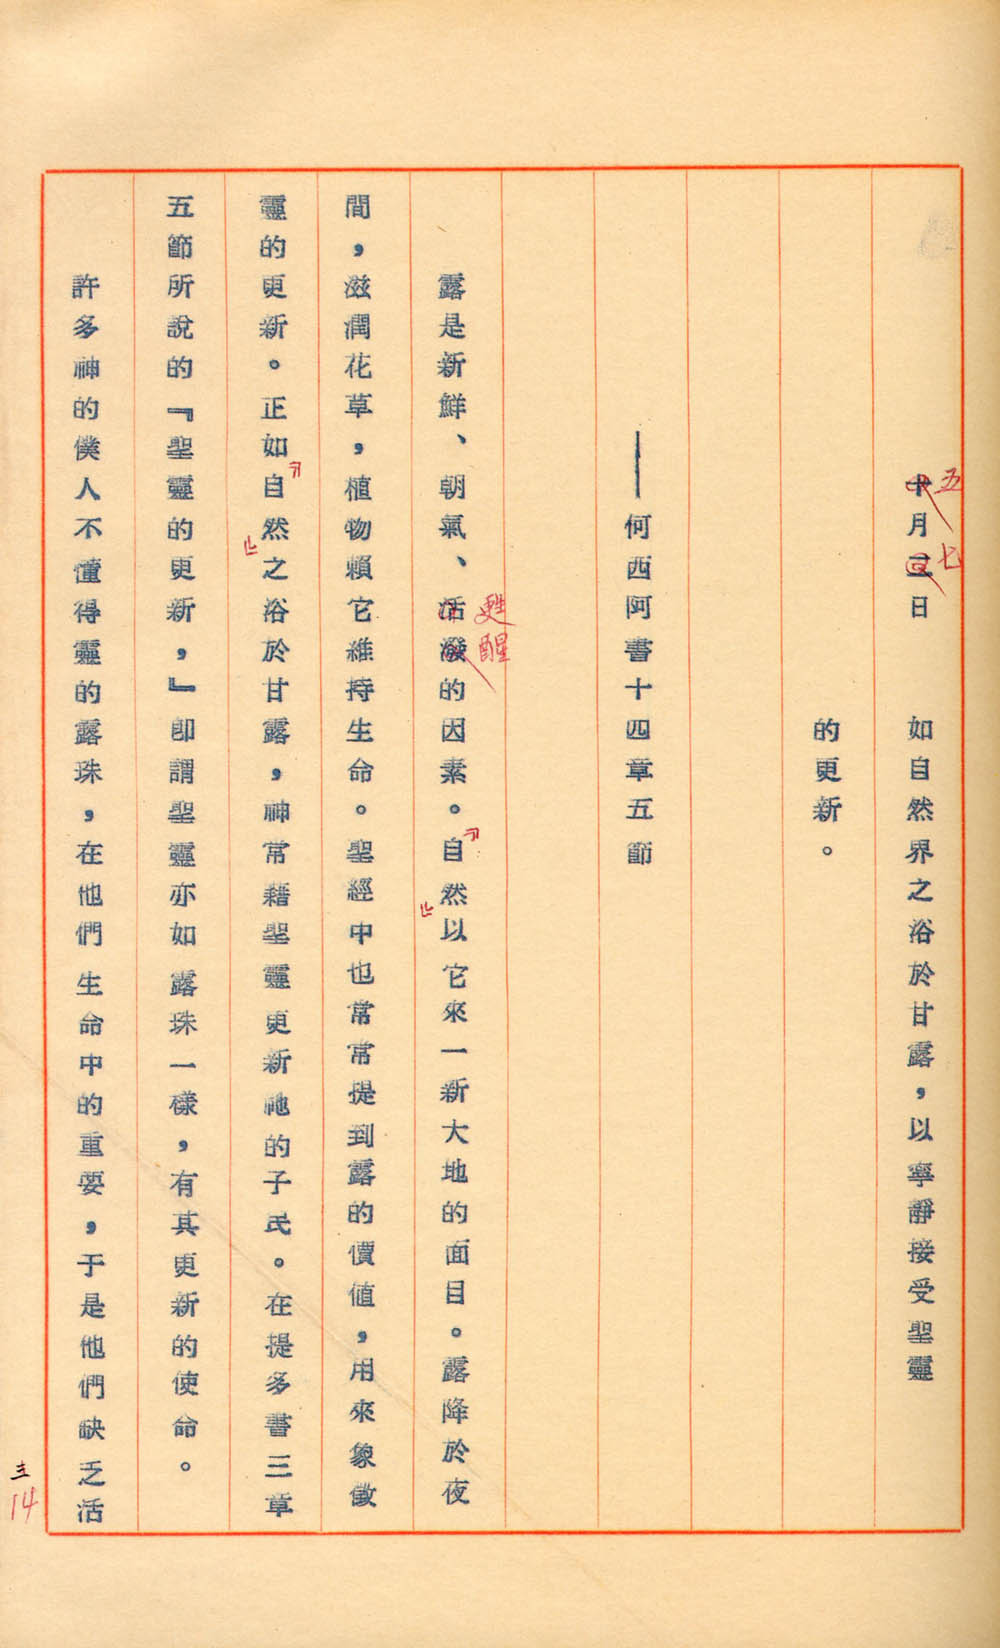 五 七
十月三日　如自然界之浴於甘露，以寧靜接受聖靈
的更新。
——何西阿書十四章五節
甦醒
露是新鮮、朝氣、活潑的因素。「自然」以它來一新大地的面目。露降於夜
間，滋潤花草，植物賴它維持生命。聖經中也常常提到露的價值，用來象徵
靈的更新。正如「自然」之浴於甘露，神常藉聖靈更新祂的子民。在提多書三章
五節所說的『聖靈的更新，』即謂聖靈亦如露珠一樣，有其更新的使命。
許多神的僕人不懂得靈的露珠，在他們生命中的重要，于是他們缺乏活
三
14